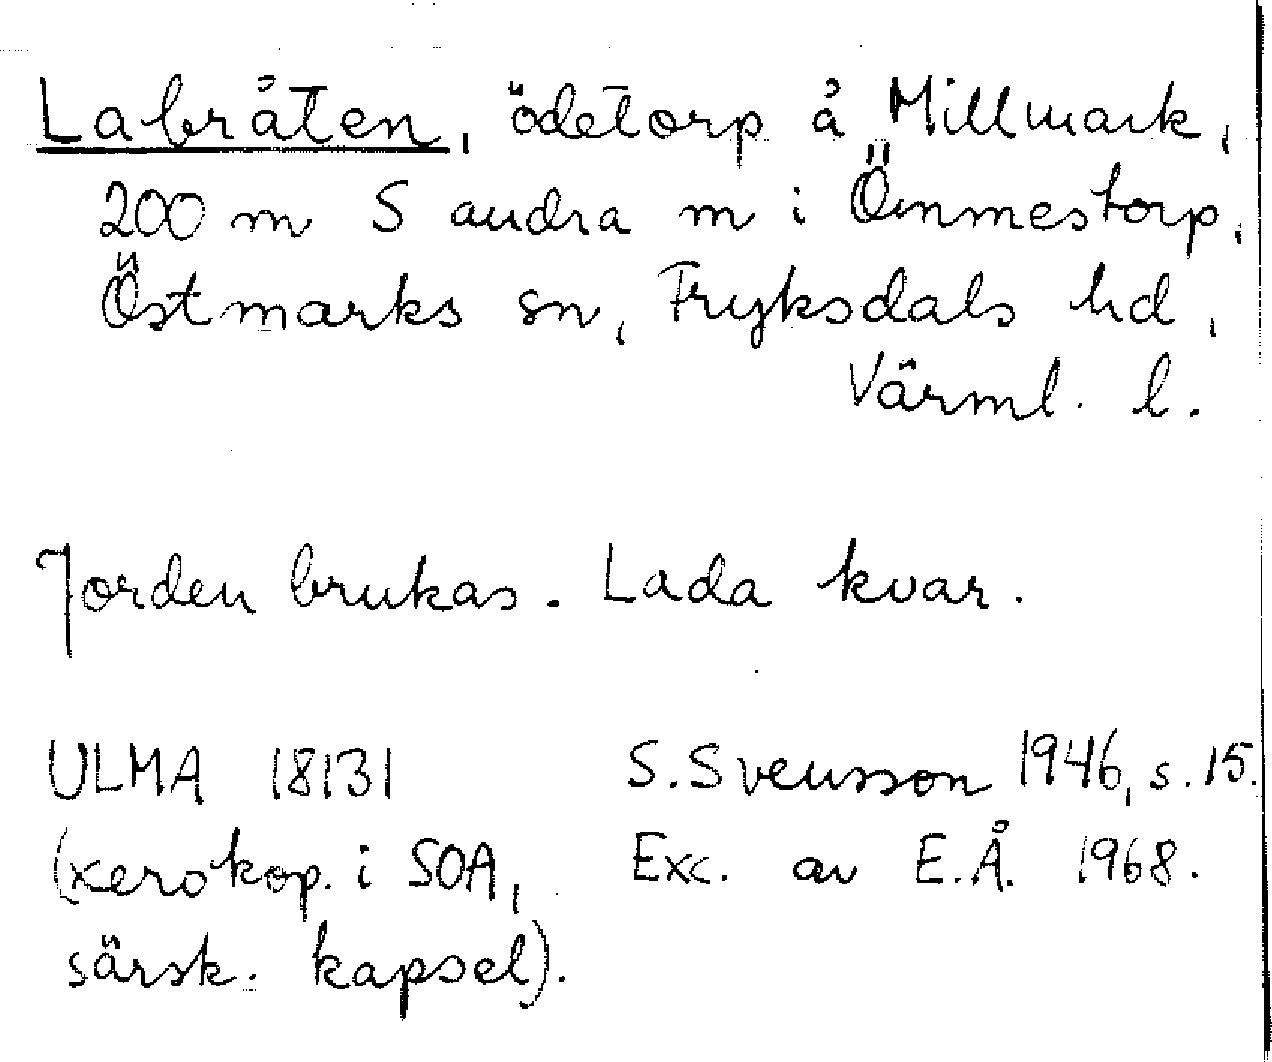 Labråten, ödetorp å Millmark,
200 m S andra m i Önmestorp,
Östmarks sn, Fryksdals hd,
Värml. l.
Jorden brukas. Lada kvar.
ULMA 18131 S. Svensson 1946, s. 15.
(xerokop. i SOA, Exc. av E.Å. 1968.
särsk. kapsel).